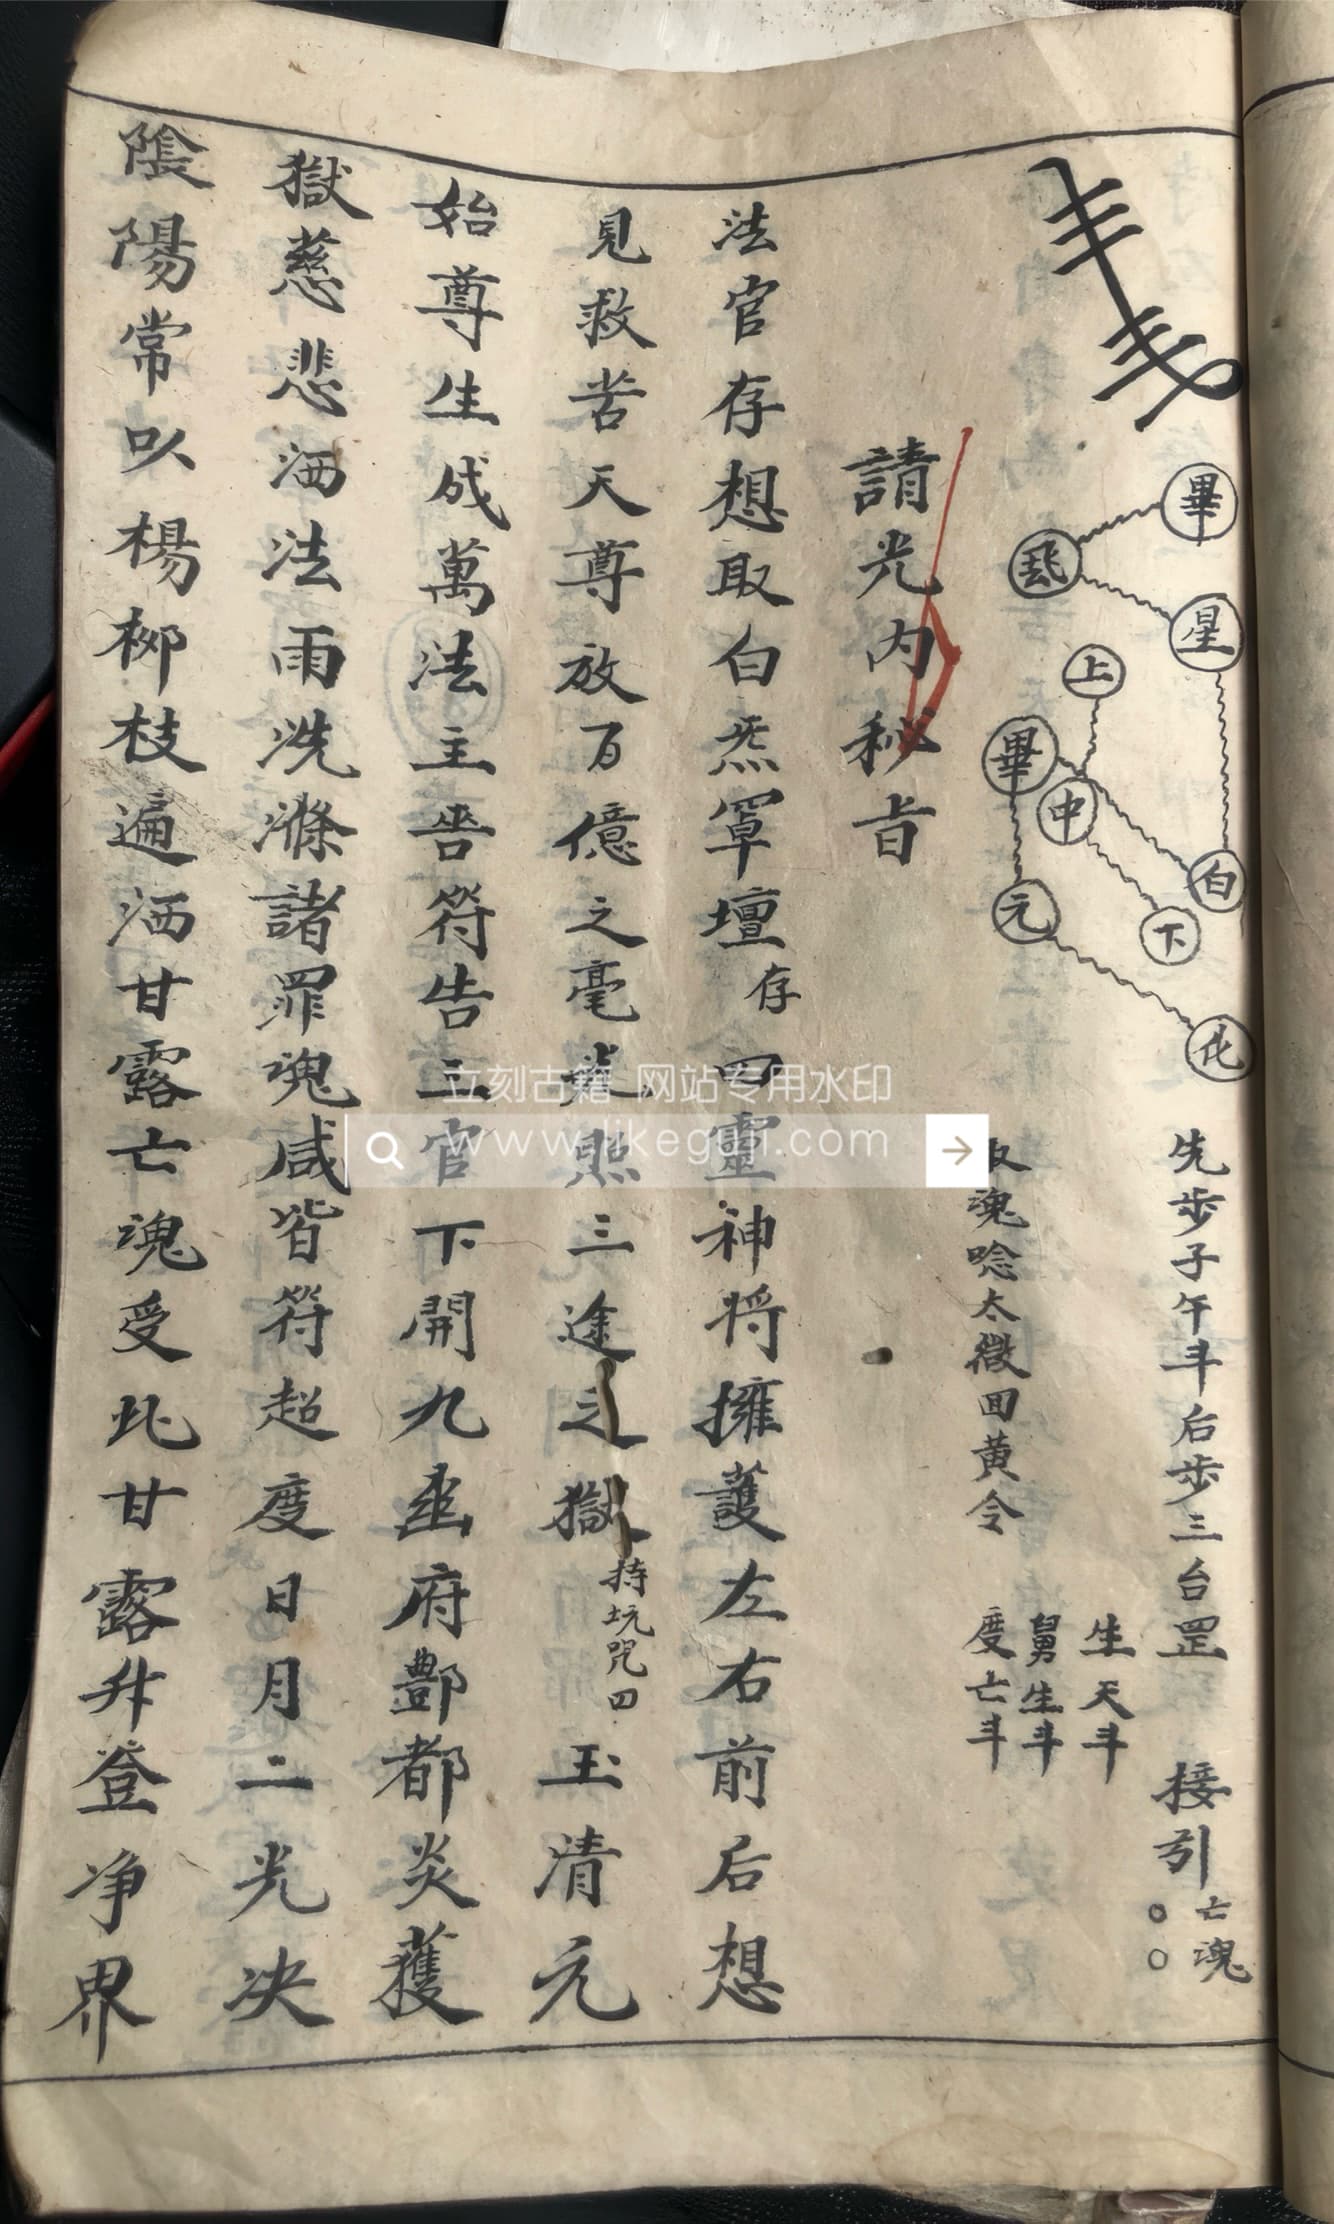 畢
星
上
畢
中
白
元
下
化
先步子午斗后步三台罡
接引亡魂
○○
生天斗
舅生斗
度亡斗
魂唸太微回黄令
請光内秘旨
法官存想取白炁罩壇存四靈神将擁護左右前后想
見救苦天尊放百億之毫光照三途之獄持坑咒四玉清元
始尊生成萬法主告符告三官下開九幽府酆都炎獲
獄慈悲洒法雨洗滌諸罪魂咸皆符超度日月二光决
陰陽常以楊柳枝遍洒甘露亡魂受此甘露升登净界
立刻古籍 网站专用水印
www.likeguji.com